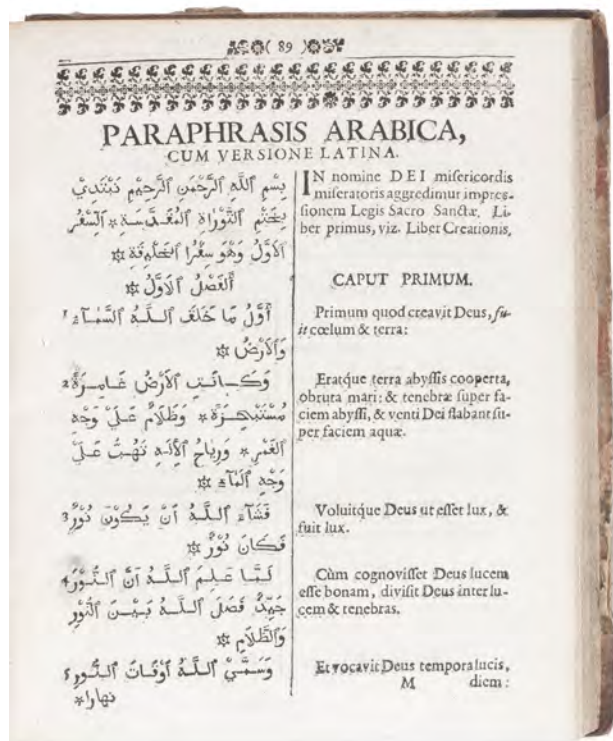 ( 89 )
PARAPHRASIS ARABICA,
CUM VERSIONE LATINA.
بِسْمِ اللَّهِ الرَّحْمَٰنِ الرَّحِيْمِ نَبْتَدِي
بِخَتْمِ التَّوْرَاةِ المُقَدَّسَةِ * السِّفْرُ
الاَوَّلُ وَهُوَ سِفْرُ الخَلِيقَةِ
أَلفَصْلُ الاَوَّلُ
1 أَوَّلُ مَا خَلَقَ اللَّهُ السَّمَآءَ
وَالاَرْضَ
2 وَكَانَتِ الاَرْضُ غَامِرَةً
مُسْتَبْحِرَةً * وَظَلَامٌ عَلَيْ وَجْهِ
الغَمْرِ * وَرِيَاحُ الاِلَهِ تَهُبُّ عَلَيْ
وَجْهِ المَآءِ
3 فَشَآءَ اللَّهُ اَنْ يَكُونَ نُورٌ
فَكَانَ نُورٌ
4 لَمَّا عَلِمَ اللَّهُ اَنَّ النُّورَ
جَيِّدٌ فَصَلَ اللَّهُ بَيْنَ النُّورِ
وَالظَّلَامِ
5 وَسَمَّيْ اللَّهُ اَوْقَاتَ النُّورِ
نهارا*
IN nomine DEI misericordis
miseratoris aggredimur impres-
sionem Legis Sacro Sanctæ. Li-
ber primus, viz. Liber Creationis.
CAPUT PRIMUM.
Primum quod creavit Deus, fu-
it cœlum & terra:
Eratque terra abyssis cooperta,
obruta mari: & tenebræ super fa-
ciem abyssi, & venti Dei flabant su-
per faciem aquæ.
Voluitque Deus ut esset lux, &
fuit lux.
Cùm cognovisset Deus lucem
esse bonam, divisit Deus inter lu-
cem & tenebras.
Et vocavit Deus tempora lucis,
M diem: